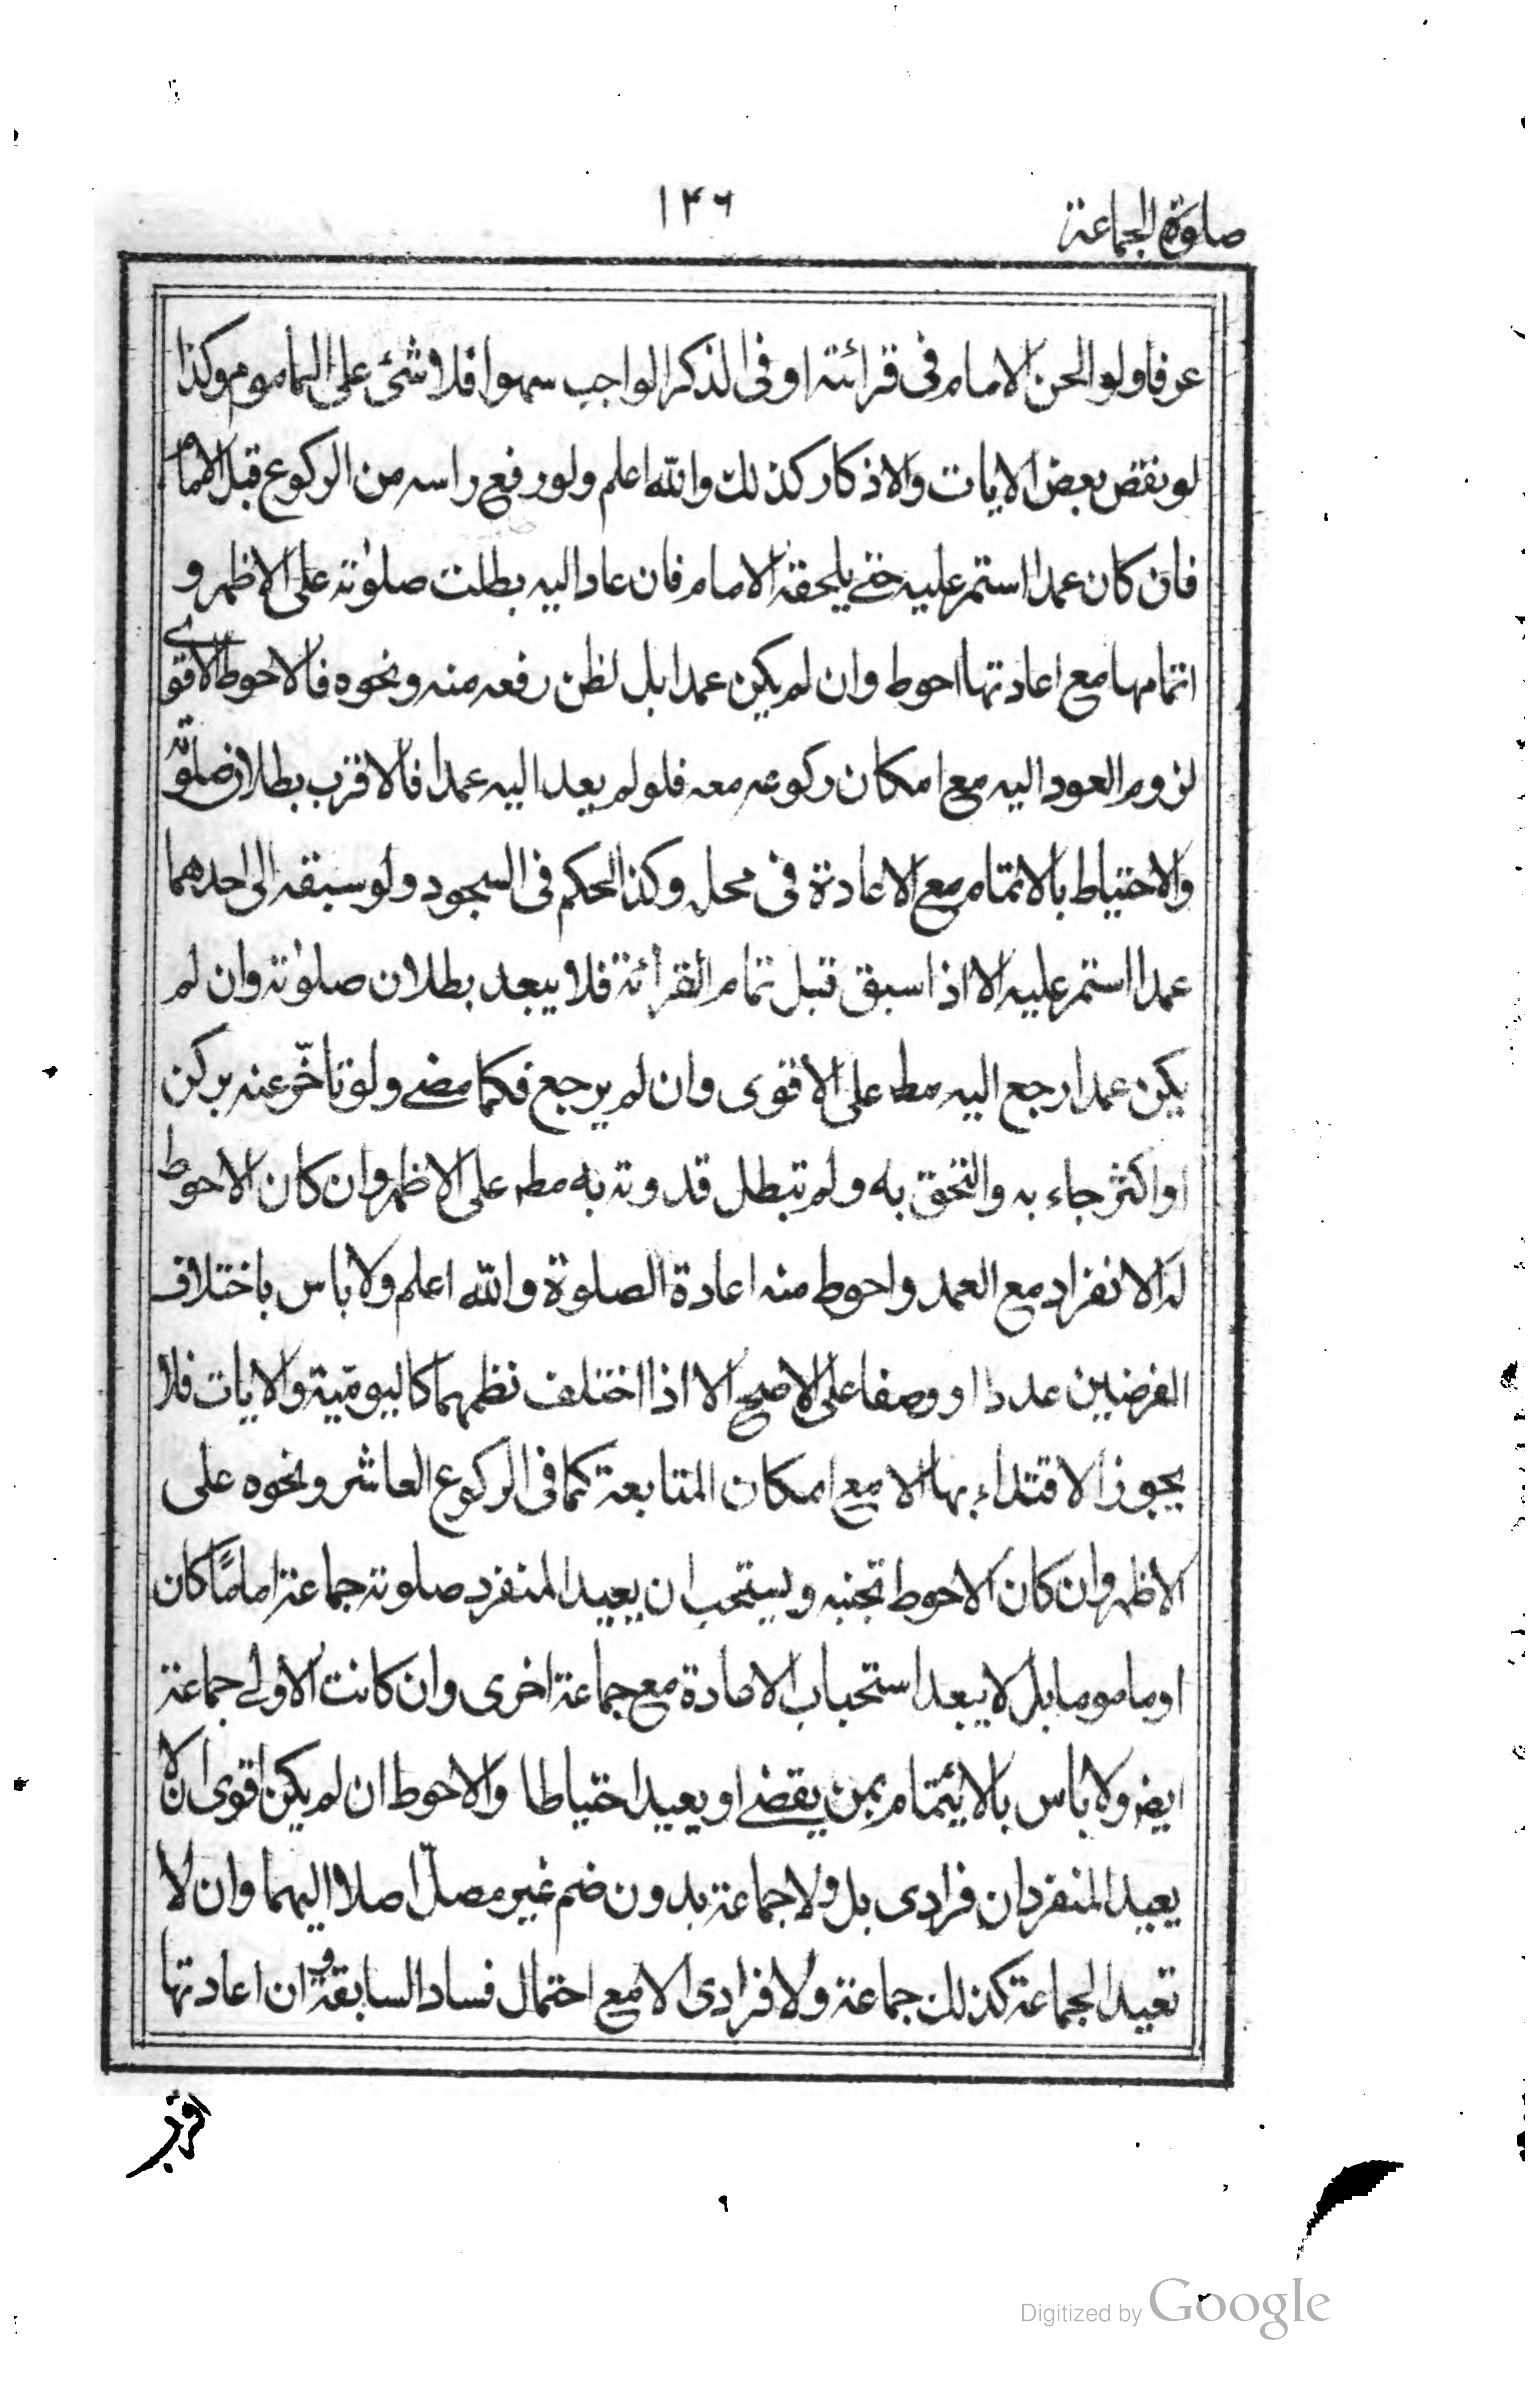 صلوة الجماعة
١٤٦
عرفا ولو الحن الامام فى قرائته او فى الذكر الواجب سهوا فلا شئ على الماموم وكذا
لو نقص بعض الايات والاذكار كذلك والله اعلم ولو رفع راسه من الركوع قبل الامام
فان كان عمدا استمر عليه حتى يلحقه الامام فان عاد اليه بطلت صلوته على الاظهر و
اتمامها مع اعادتها احوط وان لم يكن عمدا بل لظن رفعه منه ونحوه فالاحوط الاقوى
لزوم العود اليه مع امكان ركوعه معه فلو لم يعد اليه عمدا فالاقرب بطلان صلوته
والاحتياط بالاتمام مع الاعادة فى محله وكذا الحكم فى السجود ولو سبقه الى احدهما
عمدا استمر عليه الا اذا سبق قبل تمام القرائة فلا يبعد بطلان صلوته وان لم
يكن عمدا رجع اليه مط على الاقوى وان لم يرجع فكما مضى ولو تاخّر عنه بركن
او اكثر جاء به والتحق به ولم تبطل قدوته به مط على الاظهر وان كان الاحوط
له الانفراد مع العمد واحوط منه اعادة الصلوة والله اعلم ولا باس باختلاف
الفرضين عددا او وصفا على الاصح الا اذا اختلف نظمهما كاليوميّة والايات فلا
يجوز الاقتداء بها الا مع امكان المتابعة كما فى الركوع العاشر ونحوه على
الاظهر وان كان الاحوط تجنبه ويستحب ان يعيد المنفرد صلوته جماعة امامًا كان
او ماموما بل لا يبعد استحباب الاعادة مع جماعة اخرى وان كانت الاولى جماعة
ايض ولا باس بالائتمام بمن يقضى او يعيد احتياطا والاحوط ان لم يكن اقوى ان لا
يعيد المنفردان فرادى بل ولا جماعة بدون ضم غير مصلّ اصلا اليهما وان لا
تعيد الجماعة كذلك جماعة ولا فرادى الا مع احتمال فساد السابقة و ان اعادتها
اقرب
٩
Digitized by Google